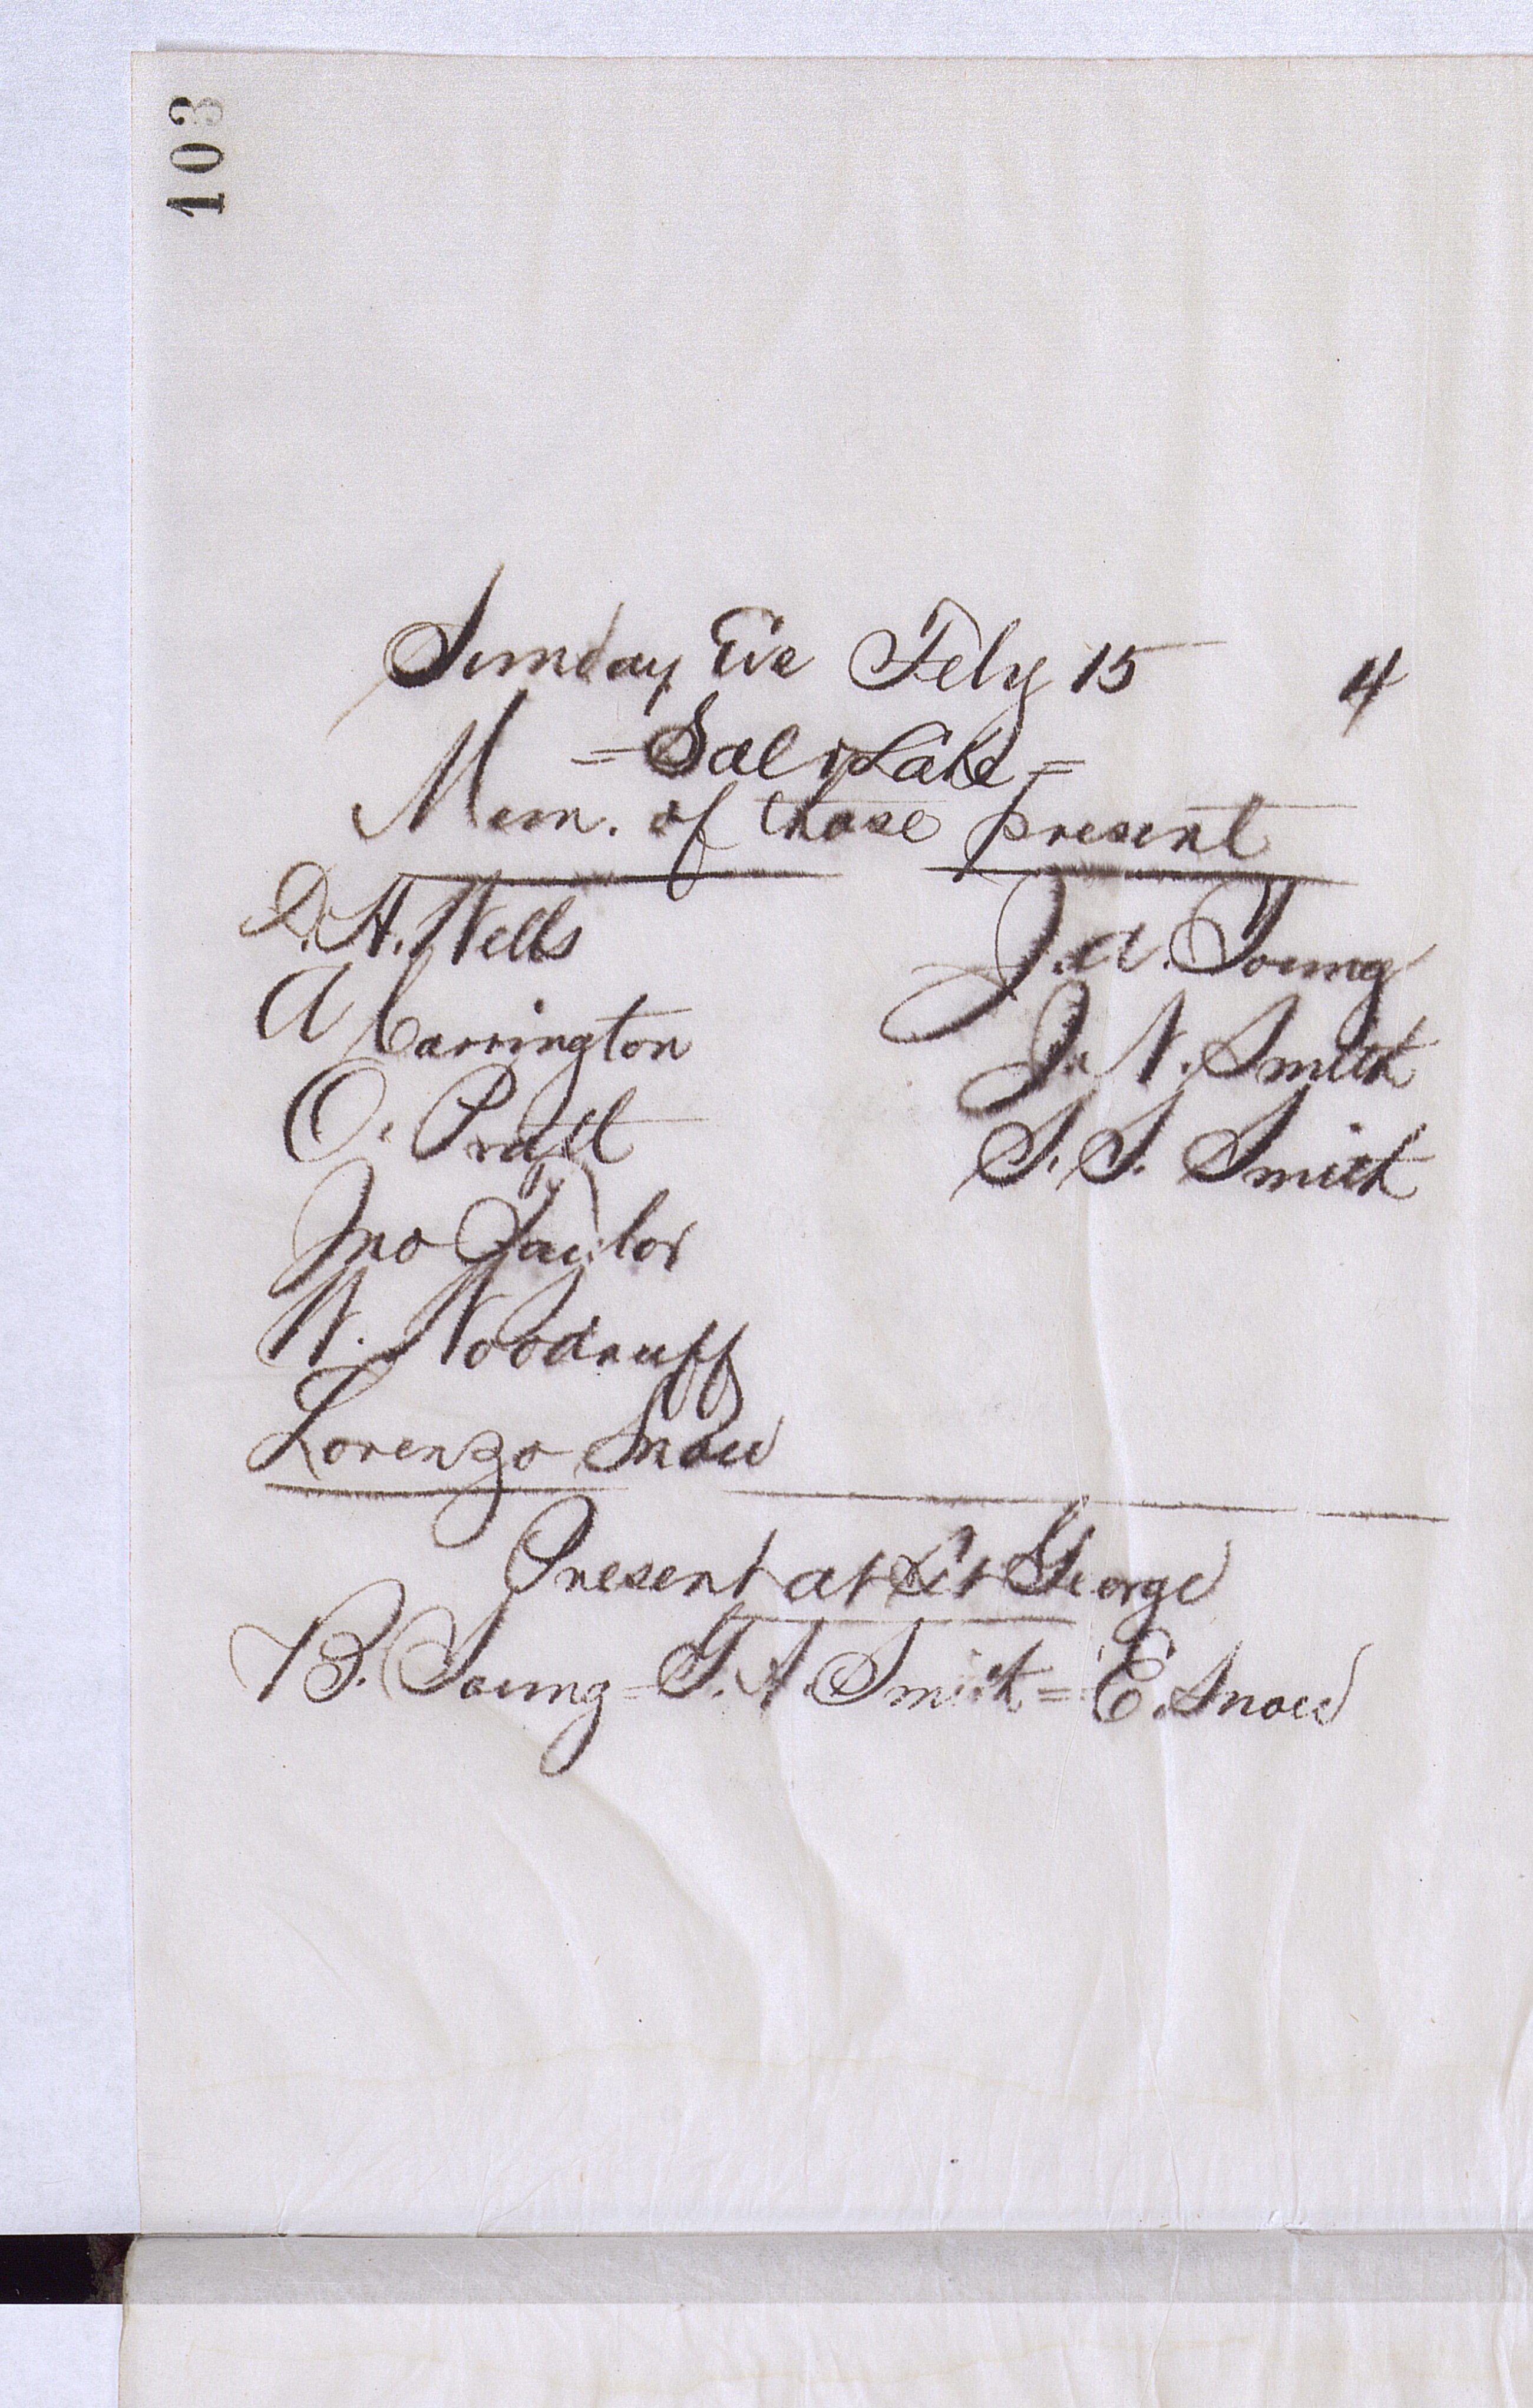 103
Sunday Eve Feby 15 4
= Salt Lake =
Mem. of those present
D. H. Wells
A Carrington
O. Pratt
Jno Taylor
W. Woodruff
Lorenzo Snow
J. A. Young
J. N. Smith
S. S. Smith
Present at St George
B. Young = G. A. Smith = E. Snow